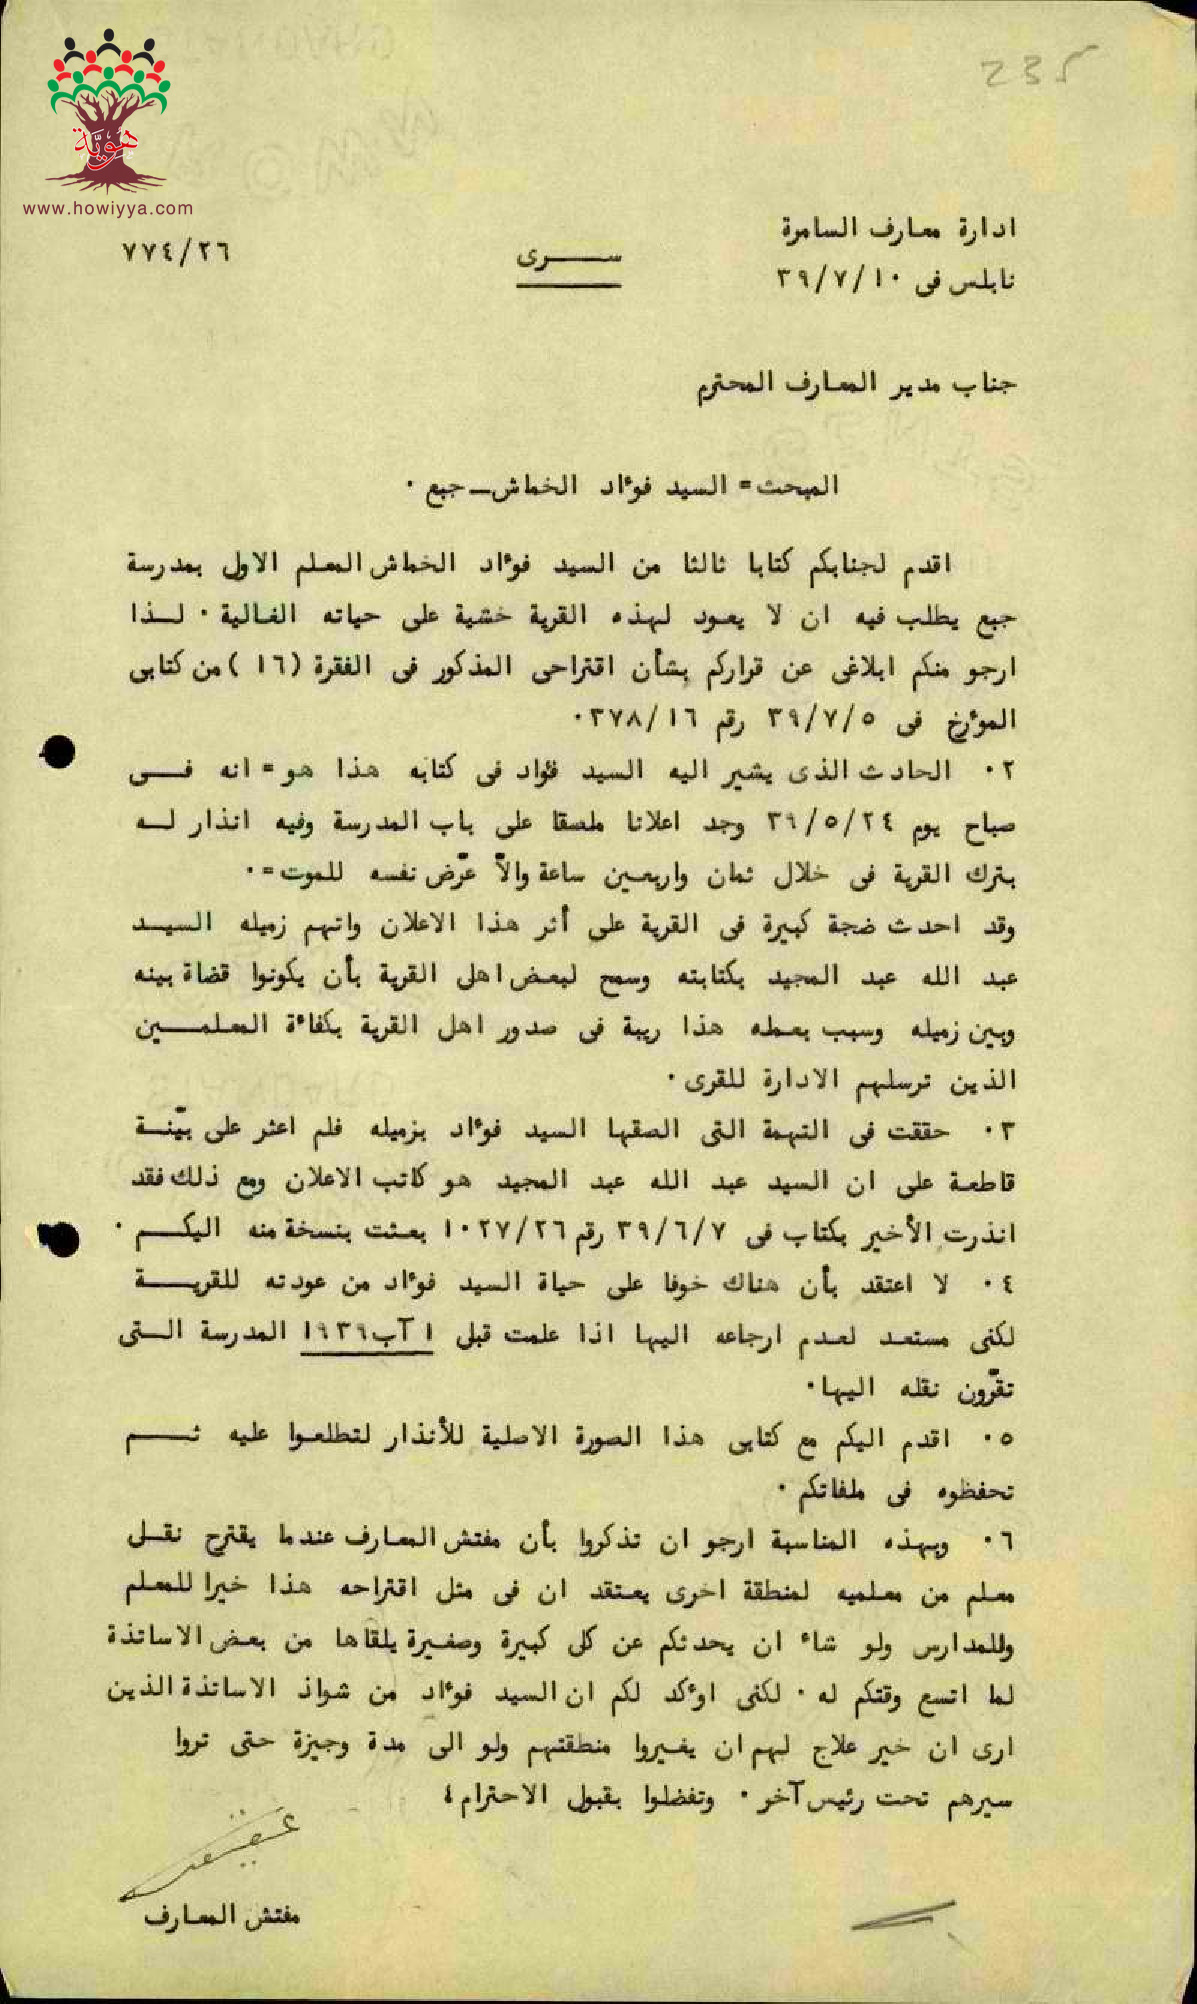 235
هوية
www.howiyya.com
ادارة معارف السامرة
٧٧٤/٢٦
سـرى
نابلس فى ٣٩/٧/١٠
جناب مدير المعارف المحترم
المبحث = السيد فوءاد الخماش ــ جبع ٠
اقدم لجنابكم كتابا ثالثا من السيد فوءاد الخماش المعلم الاول بمدرسة
جبع يطلب فيه ان لا يعود لهذه القرية خشية على حياته الغالية ٠ لـذا
ارجو منكم ابلاغى عن قراركم بشأن اقتراحى المذكور فى الفقرة (١٦ ) من كتابى
الموءرخ فى ٣٩/٧/٥ رقم ٣٧٨/١٦٠
٢ ٠ الحادث الذى يشير اليه السيد فؤاد فى كتابه هذا هو = انه فــى
صباح يوم ٣٩/٥/٢٤ وجد اعلانا ملصقا على باب المدرسة وفيه انذار لــه
بترك القرية فى خلال ثمان واربعين ساعة والاّ عرّض نفسه للموت = ٠
وقد احدث ضجة كبيرة فى القرية على أثر هذا الاعلان واتهم زميله السيــد
عبد الله عبد المجيد بكتابته وسمح لبعض اهلى القرية بأن يكونوا قضاة بينه
وبين زميله وسبب بعمله هذا ريبة فى صدور اهل القرية بكفاءة المعلمــين
الذين ترسلهم الادارة للقرى ٠
٣ ٠ حققت فى التهمة التى الصقها السيد فوءاد بزميله فلم اعثر على بيّنـة
قاطعة على ان السيد عبد الله عبد المجيد هو كاتب الاعلان ومع ذلك فقد
انذرت الأخير بكتاب فى ٣٩/٦/٧ رقم ١٠٢٧/٢٦ بعثت بنسخة منه اليكــم ٠
٤ ٠ لا اعتقد بأن هناك خوفا على حياة السيد فوءاد من عودته للقريــة
لكنى مستعد لعدم ارجاعه اليها اذا علمت قبل ١ آب ١٩٣٩ المدرسة الــتى
تقرّون نقله اليها٠
٥ ٠ اقدم اليكم مع كتابى هذا الصورة الاصلية للأنذار لتطلعوا عليه ثـــم
تحفظوه فى ملفاتكم ٠
٦ ٠ وبهذه المناسبة ارجو ان تذكروا بأن مفتش المعارف عندما يقترح نقـل
معلم من معلميه لمنطقة اخرى يعتقد ان فى مثل اقتراحه هذا خيرا للمعلم
وللمدارس ولو شاء ان يحدثكم عن كل كبيرة وصغيرة يلقاها من بعض الاساتذة
لما اتسع وقتكم له ٠ لكنى اوءكد لكم ان السيد فوءاد من شواذ الاساتذة الذين
ارى ان خير علاج لهم ان يغيروا منطقتهم ولو الى مدة وجيزة حتى تروا
سيرهم تحت رئيس آخر ٠ وتفضلوا بقبول الاحترام ٤
مفتش المعارف